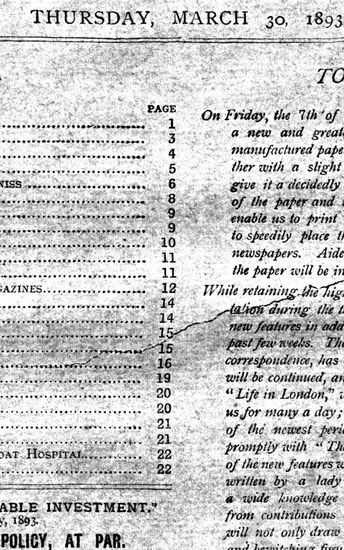 THURSDAY, MARCH 30, 1893
TO
PAGE
1
3
4
5
NISS 6
8
9
9
10
11
11
GAZINES 12
14
14
15
15
16
19
20
20
21
21
OAT HOSPITAL 22
22
ABLE INVESTMENT."
y, 1893.
POLICY, AT PAR.
On Friday, the 7th of
a new and great
manufactured pape
ther with a slight
give it a decidedly
of the paper and
enable us to print
to speedily place th
newspapers. Aide
the paper will be in
While retaining the hig
tation during the
new features in ada
past few weeks. The
correspondence, has
will be continued, an
"Life in London,"
us for many a day;
of the newest peri
promptly with "Th
of the new features w
written by a lady
a wide knowledge
from contributions
will not only draw
and bewitching